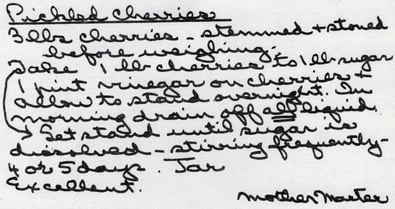 Pickled Cherries
3 lbs cherries - stemmed + stoned
before weighing.
Take 1 lb cherries to 1 lb sugar
1 pint vinegar on cherries +
allow to stand overnight. In
morning drain off all liquid.
Let stand until sugar is
dissolved - stirring frequently -
4 or 5 days. Jar
Excellent.
Mother